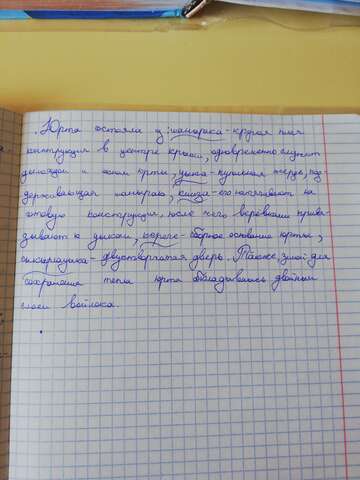 Юрта состояла из: шанырака - круглая
конструкция в центре крыши, одновременно служит
дымоходом и окном юрты, уыка - купольная жердь, под-
держивающая шанырак, киизя - его натягивают на
готовую конструкцию, после чего веревками привя-
зывают к уыкам, кереге - сборное основание юрты,
сыкырлауыка - двустворчатая дверь. Также, зимой для
сохранения тепла юрта обкладывались двойным
слоем войлока.